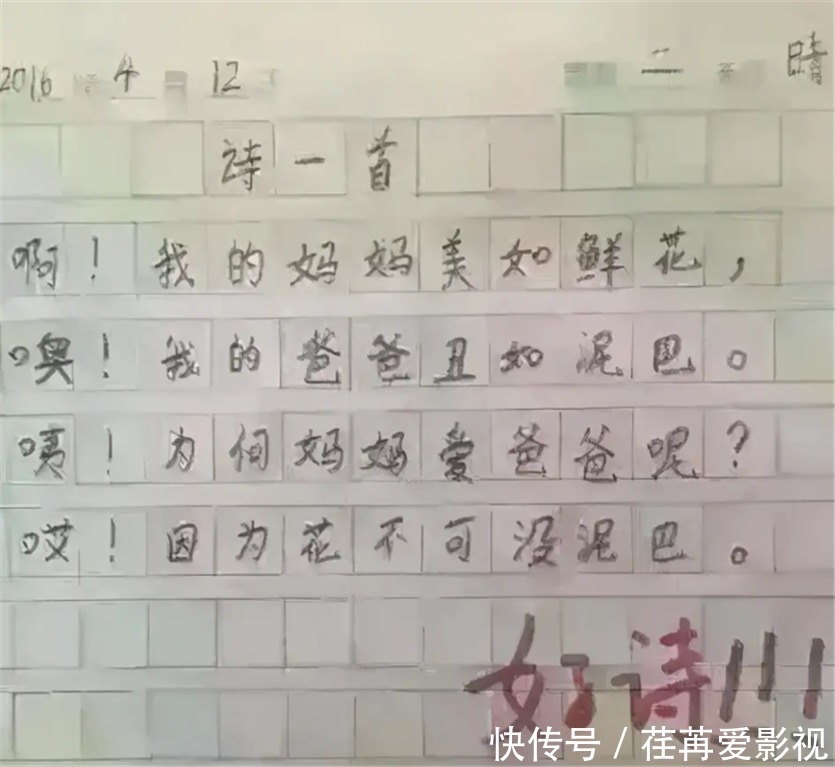 2016 4 12 二 晴
诗一首
啊！我的妈妈美如鲜花，
噢！我的爸爸丑如泥巴。
咦！为何妈妈爱爸爸呢？
哎！因为花不可没泥巴。
好诗!!!
快传号 / 荏苒爱影视